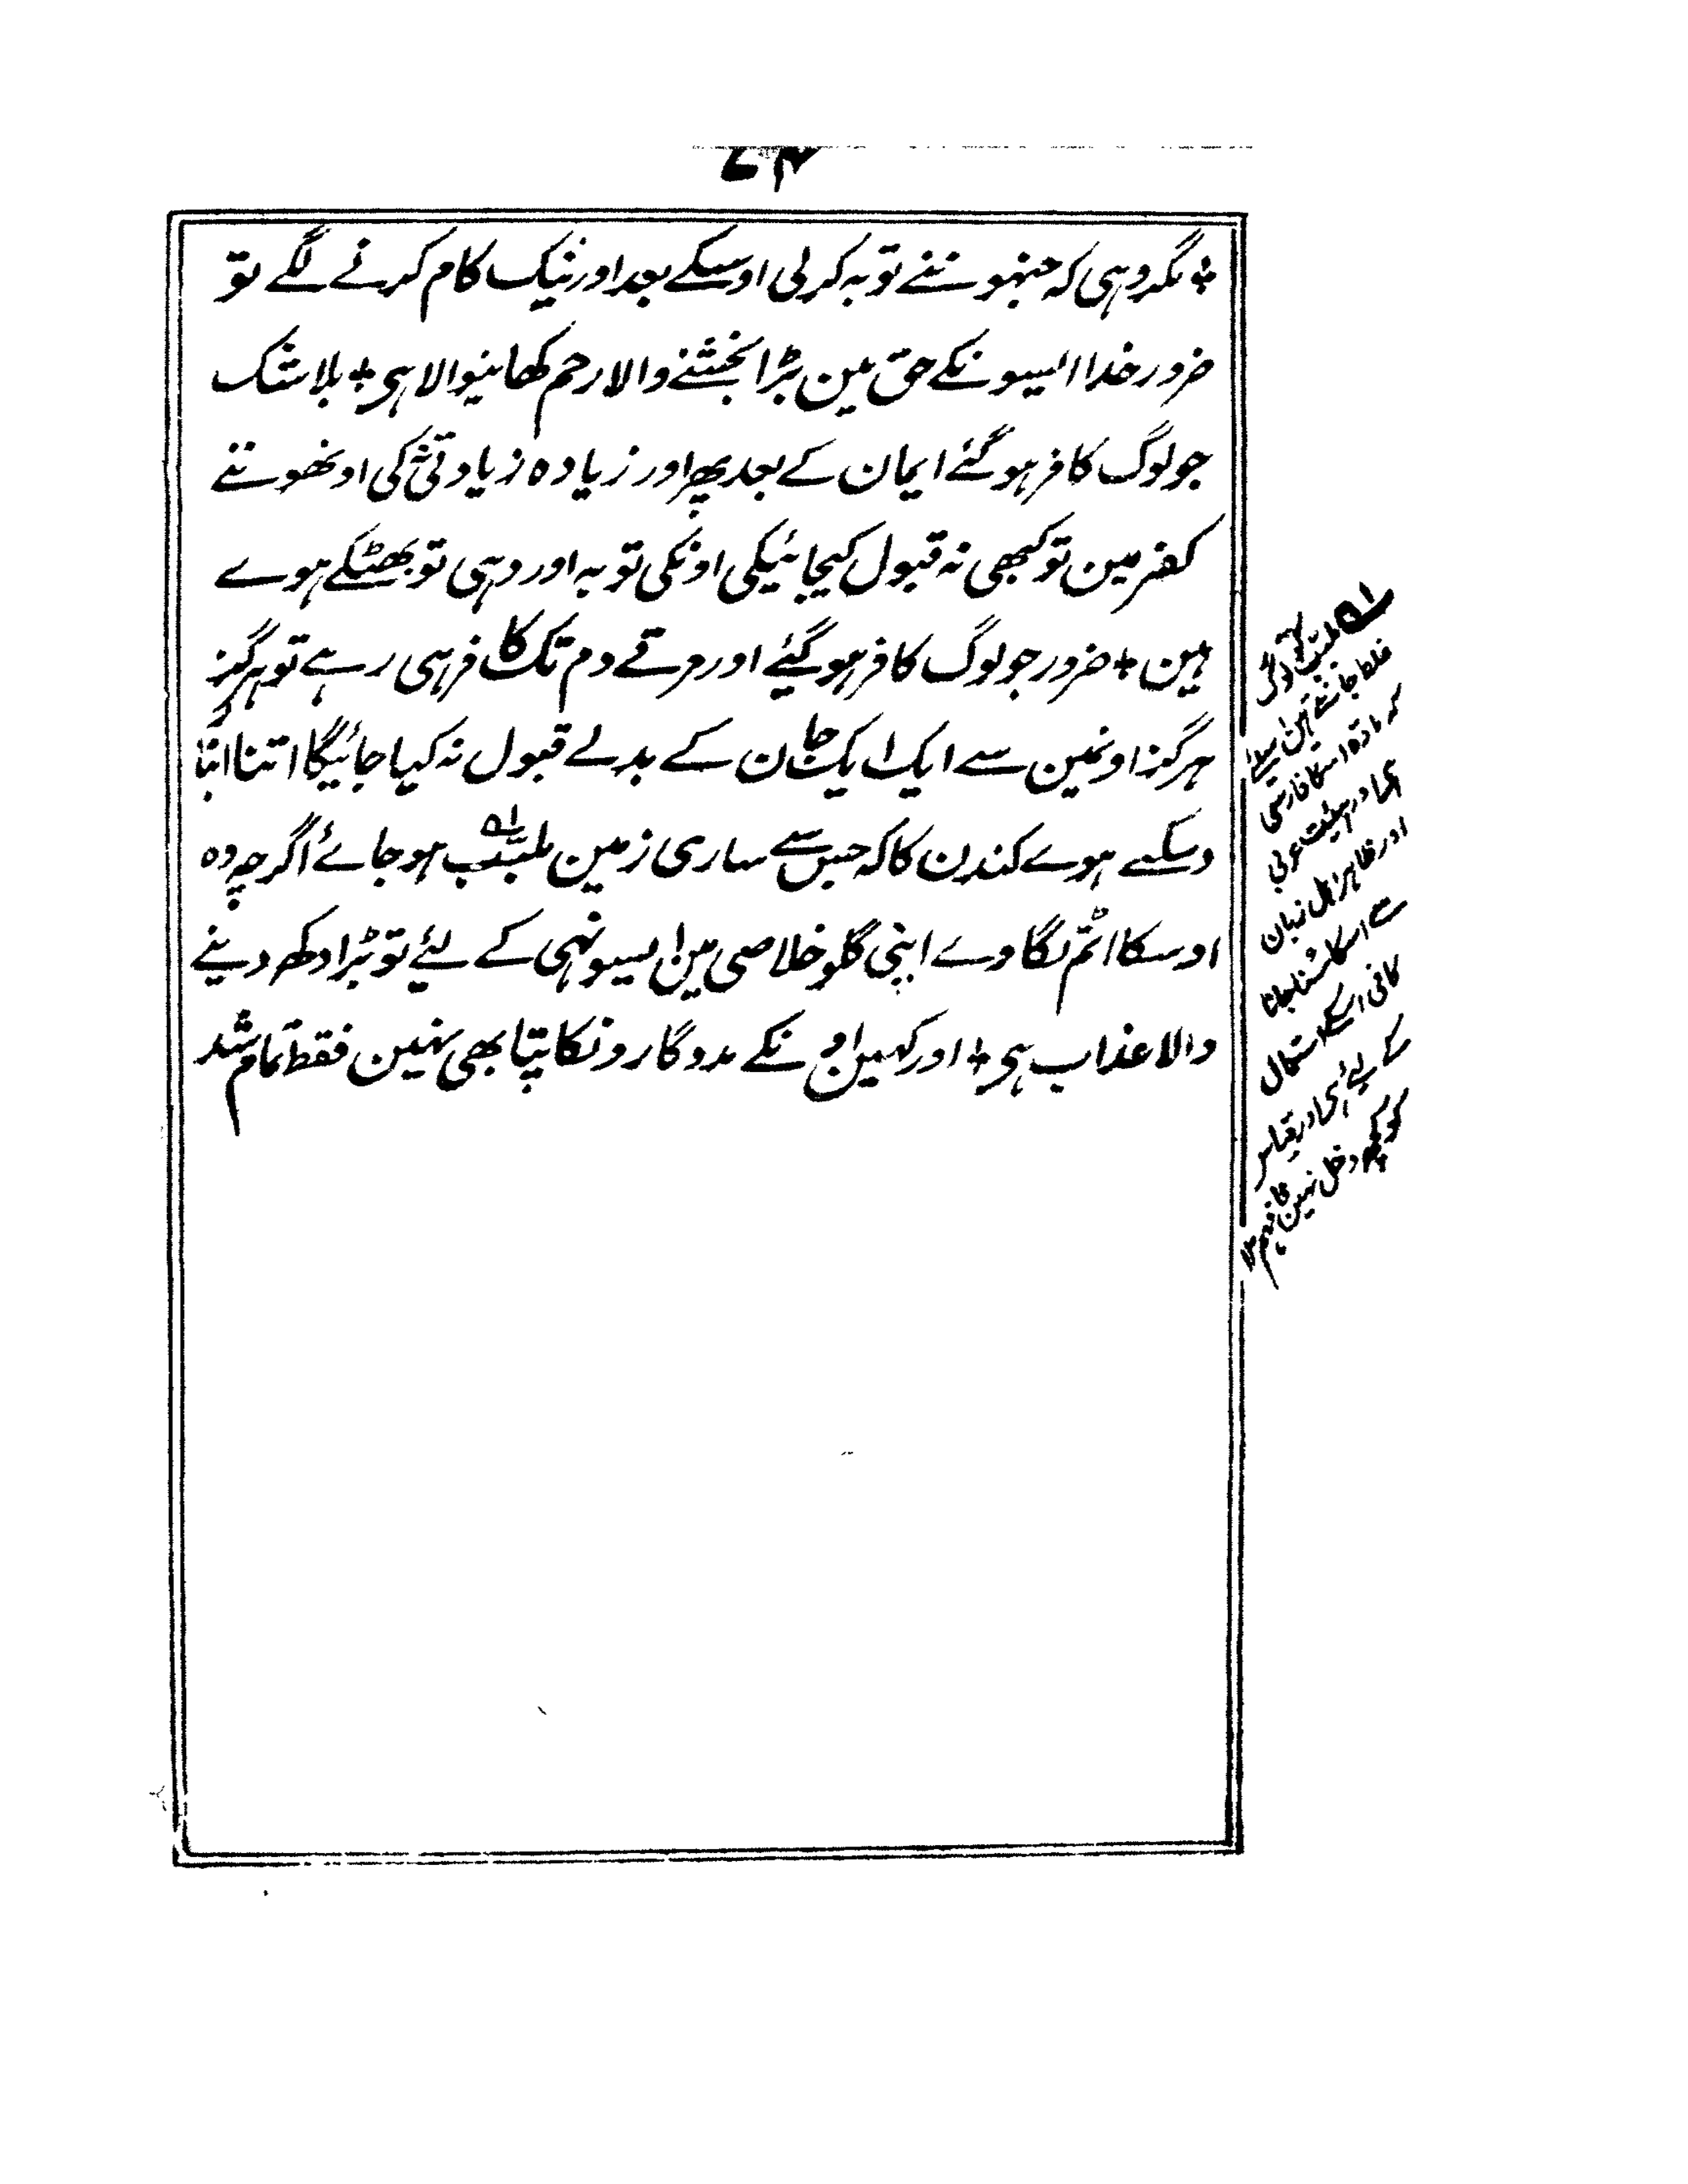 + مگر وہی کہ جنہوننے توبہ کرلی اوسکے بعد اور نیک کام کرنے لگے تو
ضرور خدا ایسیونکے حق مین بڑا بخشنے والا رحم کھانیوالا ہی + بلا شک
جو لوگ کافر ہوگئے ایمان کے بعد پھر اور زیادہ زیادتی کی اونھوننے
کفر مین تو کبھی نہ قبول کیجائیگی اونکی توبہ اور وہی تو بھٹکے ہوے
ہین + ضرور جو لوگ کافر ہوگئے اور مرتے دم تک کافر ہی رہے تو ہرگز
ہرگز اونمین سے ایک ایک جان کے بدلے قبول نہ کیا جائیگا اتنا اتنا
دمکتے ہوے کندن کا کہ جس سے ساری زمین ملبب ہو جائے اگرچہ وہ
اوسکا اٹم لگا دے اپنی گلو خلاصی مین ایسیونہی کے لئے تو بڑا دکھ دینے
والا عذاب ہی + اور کہین اونکے مددگارونکا پتا بھی نہین فقط تمام شد
ملبب کو لوگ
غلط جانتے ہین اسلئے
کہ مادہ اسکا فارسی
ہی اور ہیئت عربی
اور ظاہرا اہل زبان
سے اسکا سنا جانا
کافی اسکے استعمال
کے لئے ہی اور قیاس
کو کچھ دخل نہین فافہم ۱۲